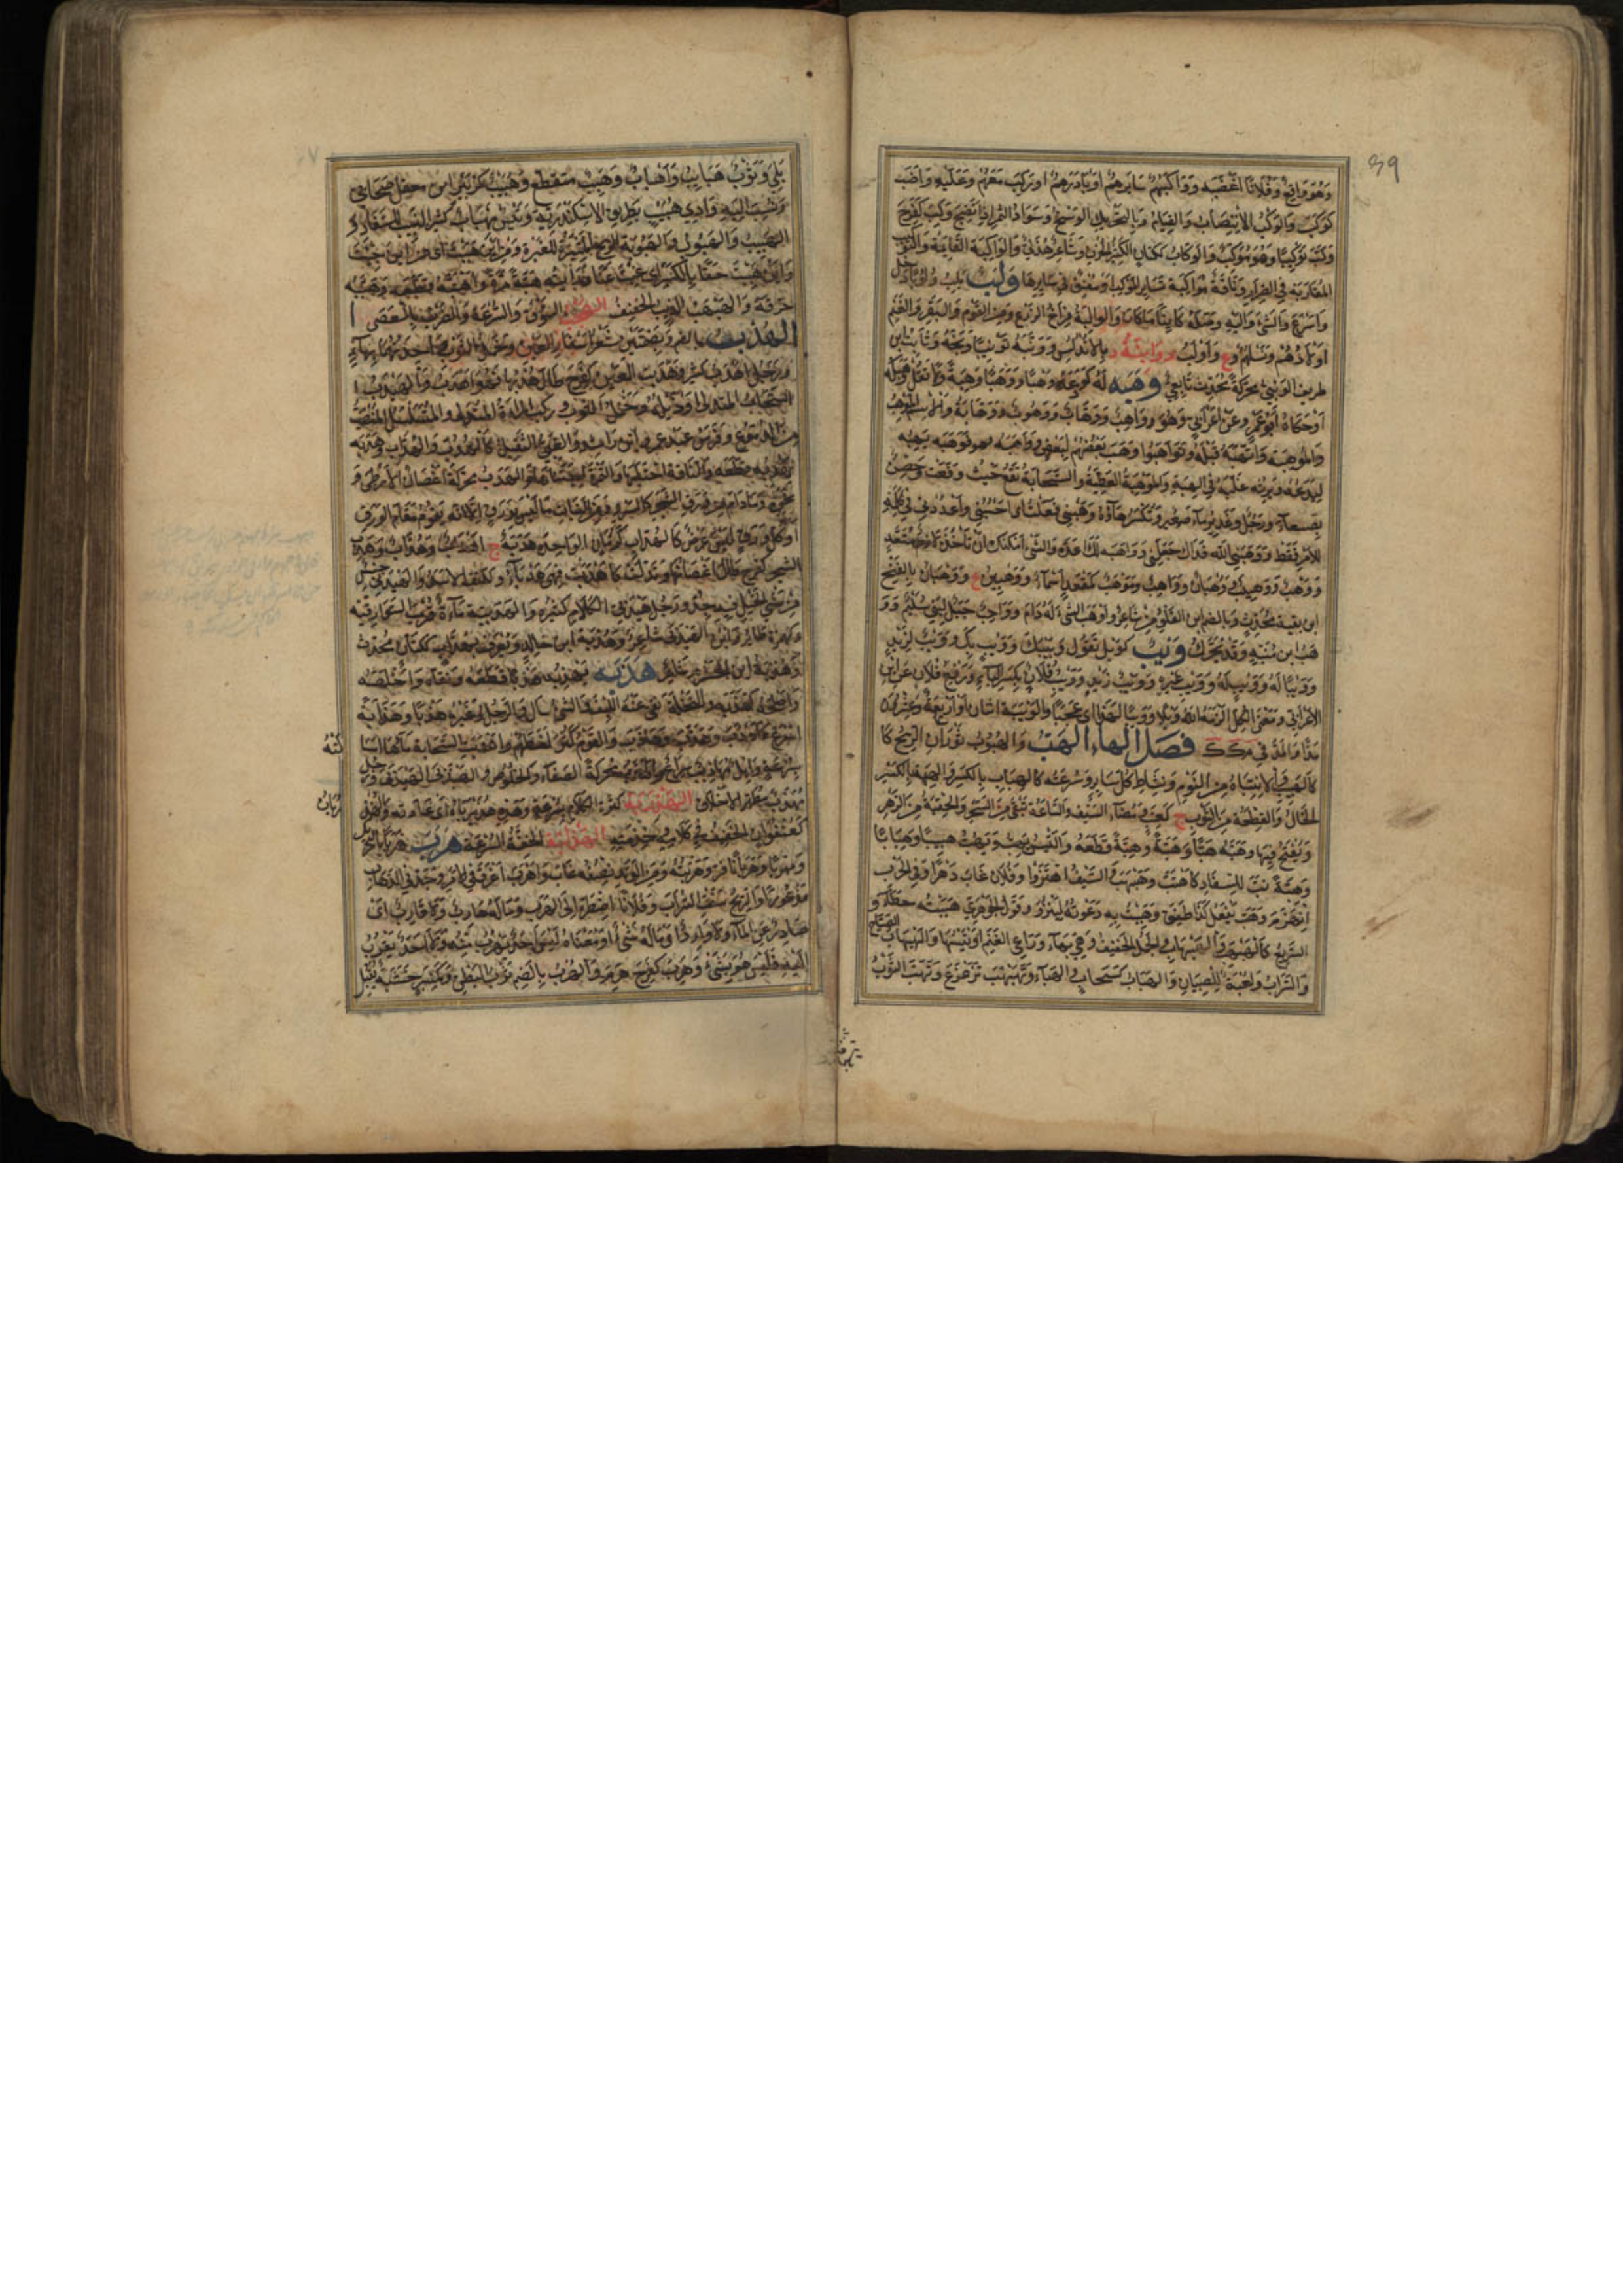 وَهُوَ وَاقِعٌ وَفُلَانًا اَغْضَبَهُ وَوَاكَبَهُمْ سَايَرَهُمْ اَوْ بَادَرَهُمْ اَوْ رَكِبَ مَعَهُمْ وَعَلَيْهِ وَاظَبَ
كَوَكَبَ وَالوَكْبُ الاِنْتِصَابُ وَالقِيَامُ وَبِالتَّحْرِيكِ الوَسَخُ وَسَوَادُ التَّمْرِ اِذَا نَضِجَ وَكِبَ كَفَرِحَ
وَكَّبَ تَوْكِيبًا وَهُوَ مُوَكِّبٌ وَالوَكَّابُ كَكَتَّانٍ الكَثِيرُ الحُزْنِ وَشَاعِرٌ هُذَلِيٌّ وَالوَاكِبَةُ القَائِمَةُ وَالتَّوْكِيبُ
المُقَارَبَةُ فِي الصِّرَارِ وَنَاقَةٌ مُوَاكِبَةٌ تُسَايِرُ المَوْكِبَ اَوْ مُعْنِقٌ فِي سَيْرِهَا وَلَبَ يَلِبُ وُلُوبًا دَخَلَ
وَاَسْرَعَ وَالشَّيْءَ وَاِلَيْهِ وَصَلَهُ كَائِنًا مَا كَانَ وَالوَالِبَةُ فِرَاخُ الزَّرْعِ وَمِنَ القَوْمِ وَالبَقَرِ وَالغَنَمِ
اَوْلَادُهُمْ وَنَسْلُهُمْ وَع وَاَوْلَبُ د بِالاَنْدَلُسِ وَوَنَّبَهُ تَوْنِيبًا وَبَّخَهُ وَثَابِتُ بْنُ
طَرِيفٍ الوَنَبِيُّ مُحَرَّكَةً مُحَدِّثٌ تَابِعِيٌّ وَهَبَهُ لَهُ كَوَدَعَهُ وَهْبًا وَوَهَبًا وَهِبَةً وَلَا تَقُلْ وَهَبَكَهُ
اَوْ حَكَاهُ اَبُو عَمْرٍو عَنْ اَعْرَابِيٍّ وَهُوَ وَاهِبٌ وَوَهَّابٌ وَوَهُوبٌ وَوَهَّابَةٌ وَالاِسْمُ المَوْهِبُ
وَالمَوْهِبَةُ وَاتَّهَبَهُ قَبِلَهُ وَتَوَاهَبُوا وَهَبَ بَعْضُهُمْ لِبَعْضٍ وَوَاهَبَهُ فَوَهَبَهُ يَهَبُهُ
وَيَرِثُهُ غَلَبَهُ فِي الهِبَةِ وَالمَوْهِبَةُ العَطِيَّةُ وَالسَّحَابَةُ تَقَعُ حَيْثُ وَقَعَتْ وَحِصْنٌ
بِصَنْعَاءَ وَرَجُلٌ وَغَدِيرُ مَاءٍ صَغِيرٌ وَتُكْسَرُ هَاؤُهُ وَهَبْنِي فَعَلْتُ اَيْ اِحْسُبْنِي وَاعْدُدْنِي كَلِمَةٌ
لِلْاَمْرِ فَقَطْ وَوَهَبَنِي اللهُ فِدَاكَ جَعَلَنِي وَاَوْهَبَهُ لَكَ اَعَدَّهُ وَالشَّيْءُ اَمْكَنَكَ اَنْ تَأْخُذَهُ لَازِمٌ مُتَعَدٍّ
وَوَهْبٌ وَوُهَيْبٌ وَوَهْبَانُ وَوَاهِبٌ وَمَوْهَبٌ كَمَقْعَدٍ اَسْمَاءٌ وَوَهْبِينُ ع وَوَهْبَانُ بِالفَتْحِ
ابْنُ بَقِيَّةَ مُحَدِّثٌ وَبِالضَّمِّ ابْنُ القَلُوصِ شَاعِرٌ وَاَوْهَبَ الشَّيْءُ لَهُ دَامَ وَوَاهِبٌ جَبَلٌ لِبَنِي سُلَيْمٍ وَوَ
هْبُ ابْنُ مُنَبِّهٍ وَقَدْ يُحَرَّكُ وَيْبٌ كَوَيْلٍ تَقُولُ وَيْبَكَ وَوَيْبٍ بِكَ وَوَيْبٌ لِزَيْدٍ
وَوَيْبًا لَهُ وَوَيْبٍ لَهُ وَوَيْبِ غَيْرِهِ وَوَيْبُ زَيْدٍ وَوَيْبِ فُلَانٍ بِكَسْرِ البَاءِ وَرَفْعِ فُلَانٍ عَنِ ابْنِ
الاَعْرَابِيِّ وَمَعْنَى الكُلِّ اَلْزَمَهُ اللهُ وَيْلًا وَوَيْبًا لِهَذَا اَيْ عَجَبًا وَالوَيْبَةُ اثْنَانِ اَوْ اَرْبَعَةٌ وَعِشْرُونَ
مُدًّا وَالمُدُّ فِي مكك فَصْلُ الهَاءِ الهَبُّ وَالهُبُوبُ ثَوَرَانُ الرِّيحِ كَا
كَالهَبِيبِ الاِنْتِبَاهُ مِنَ النَّوْمِ وَنَشَاطُ كُلِّ سَائِرٍ وَسُرْعَتُهُ كَالهِبَابِ بِالكَسْرِ وَالهِبَّةُ بِالكَسْرِ
الحَالُ وَالقِطْعَةُ مِنَ الثَّوْبِ ج كَعِنَبٍ وَمَضَاءُ السَّيْفِ وَالسَّاعَةُ تَبْقَى مِنَ السَّحَرِ وَالحِقْبَةُ مِنَ الدَّهْرِ
وَيُفْتَحُ فِيهِمَا وَهَبَّهُ هَبًّا وَهَبَّةً وَهِبَّةً قَطَعَهُ وَالتَّيْسُ يَهِبُّ وَيَهُبُّ هَبِيبًا وَهِبَابًا
وَهَبَّةً نَبَّ لِلسِّفَادِ كَاهْتَبَّ وَهَبْهَبَ وَالسَّيْفُ اهْتَزَّ وَفُلَانٌ غَابَ دَهْرًا وَفِي الحَرْبِ
اِنْهَزَمَ وَهَبَّ يَفْعَلُ كَذَا طَفِقَ وَهَبَبْتُ بِهِ دَعَوْتُهُ لِيَنْزُوَ وَقَوْلُ الجَوْهَرِيِّ هَبَبْتُهُ خَطَأٌ وَ
السَّرِيعُ كَالهَبْهَبِيِّ وَالجَمَلُ الخَفِيفُ وَهِيَ بِهَاءٍ وَرَاعِي الغَنَمِ اَوْ تَيْسُهَا وَالهَبْهَابُ الصَّيَّاحُ
وَالسَّرَابُ وَلُعْبَةٌ لِلصِّبْيَانِ وَالهَبَابُ كَسَحَابٍ الهَبَاءُ وَتَهَبْهَبَ تَزَعْزَعَ وَتَهَبَّبَ الثَّوْبُ
بَلِيَ وَثَوْبٌ هَبَايِبُ وَاَهْبَابٌ وَهِبَبٌ مُتَقَطِّعٌ وَهُبَيْبٌ كَزُبَيْرٍ ابْنُ مُغْفِلٍ صَحَابِيٌّ
وَنُسِبَ اِلَيْهِ وَادِي هُبَيْبٍ بِطَرِيقِ الاِسْكَنْدَرِيَّةِ وَتَيْسٌ مِهْبَابٌ كَثِيرُ النَّبِّ لِلسِّفَادِ وَ
الهَبِيبُ وَالهَبُوبُ وَالهَبُوبَةُ الرِّيحُ المُثِيرَةُ لِلْغَبَرَةِ وَمِنْ اَيْنَ هَبَبْتَ اَيْ مِنْ اَيْنَ جِئْتَ
وَاَيْنَ هَبِبْتَ عَنَّا بِالكَسْرِ اَيْ غِبْتَ عَنَّا وَرَأَيْتُهُ هَبَّةً مَرَّةً وَاهْتَبَّهُ قَطَعَهُ وَهَبَّبَهُ
خَرَقَهُ وَالهَبْهَبُ الذِّئْبُ الخَفِيفُ السَّوْقُ وَالسُّرْعَةُ وَالضَّرْبُ بِالعَصَى
الهُدْبُ بِالضَّمِّ وَبِضَمَّتَيْنِ شَعَرُ اَشْفَارِ العَيْنِ وَخَمْلُ الثَّوْبِ وَاحِدَتُهُمَا بِهَاءٍ
وَرَجُلٌ اَهْدَبُ كَثِيرُهُ وَهَدِبَتِ العَيْنُ كَفَرِحَ طَالَ هُدْبُهَا فَهُوَ اَهْدَبُ وَالهَيْدَبُ
السَّحَابُ المُتَدَلِّي اَوْ ذَيْلُهُ وَخَمْلُ الثَّوْبِ وَرَكَبُ المَرْأَةِ المُتَدَلِّي وَالمُتَسَلْسِلُ المُنْصَبُّ
مِنَ الدُّمُوعِ وَفَرَسُ عَبْدِ عَمْرِو ابْنِ رَاشِدٍ وَالعَيِيُّ الثَّقِيلُ كَالهُدُبِّ وَالهُدَّابِ وَهَدَبَهُ
يَهْدِبُهُ قَطَعَهُ وَالنَّاقَةَ احْتَلَبَهَا وَالثَّمَرَةَ اجْتَنَاهَا وَالهَدَبُ مُحَرَّكَةً اَغْصَانُ الاَرْطَى وَ
نَحْوِهِ وَمَا دَامَ مِنْ وَرَقِ الشَّجَرِ كَالسَّرْوِ وَمِنَ النَّبَاتِ مَا لَيْسَ بِوَرَقٍ اِلَّا اَنَّهُ يَقُومُ مَقَامَ الوَرَقِ
اَوْ كُلُّ وَرَقٍ لَيْسَ لَهُ عَرْضٌ كَالهُدَّابِ كَرُمَّانٍ الوَاحِدَةُ هَدَبَةٌ ج اَهْدَابٌ وَهُدَّابٌ وَهَدِبَ
الشَّجَرُ كَفَرِحَ طَالَ اَغْصَانُهَا وَتَدَلَّتْ كَاَهْدَبَتْ فَهِيَ هَدْبَاءُ وَكَكَتِفٍ الاَسَدُ وَالهَيْدَبَى جِنْسٌ
مِنْ مَشْيِ الخَيْلِ فِيهِ جِدٌّ وَرَجُلٌ هَيْدَبِيُّ الكَلَامِ كَثِيرُهُ وَالهَدَبِيَّةُ مَاءَةٌ قُرْبَ السَّوَارِقِيَّةِ
وَكَهُمَزَةٍ طَائِرٌ وَابْنُ الهَيْدَبَى شَاعِرٌ وَهُدْبَةُ ابْنُ خَالِدٍ وَيُعْرَفُ بِهَدَّابٍ كَكَتَّانٍ مُحَدِّثٌ
وَهُدْبَةُ ابْنُ الخَشْرَمِ شَاعِرٌ هَذَبَهُ يَهْذِبُهُ هَذْبًا قَطَعَهُ وَنَقَّاهُ وَاَخْلَصَهُ
وَاَصْلَحَهُ كَهَذَّبَهُ وَالنَّخْلَةَ نَقَّى عَنْهَا اللِّيفَ وَالشَّيْءُ سَالَ وَالرَّجُلُ وَغَيْرُهُ هَذْبًا وَهَذَابَةً
اَسْرَعَ كَاَهْذَبَ وَهَذَّبَ وَهَاذَبَ وَالقَوْمُ كَثُرَ لَغَطُهُمْ وَاَهْذَبَتِ السَّحَابَةُ مَاءَهَا اَسَالَتْهُ
بِسُرْعَةٍ وَاِبِلٌ مَهَاذِيبُ سِرَاعٌ وَالهَذَبُ مُحَرَّكَةً الصَّفَاءُ وَالخُلُوصُ وَالهَيْذَبَى وَرَجُلٌ
مُهَذَّبٌ مُطَهَّرُ الاَخْلَاقِ الهَذْرَبَةُ كَثْرَةُ الكَلَامِ بِسُرْعَةٍ وَهَذِهِ هُذَيْرِبَاهُ اَيْ عَادَتُهُ وَالهُذْرُبَانُ
كَعُنْفُوَانٍ الخَفِيفُ فِي كَلَامِهِ وَخِدْمَتِهِ الهَذْلَبَةُ الخِفَّةُ السُّرْعَةُ هَرَبَ هَرَبًا بِالتَّحْرِيكِ
وَمَهْرَبًا وَهَرَبَانًا فَرَّ وَهَرَّبْتُهُ وَمِنَ الوَتَدِ نِصْفُهُ غَابَ وَاَهْرَبَ اَغْرَقَ فِي الاَمْرِ وَجَدَّ فِي الذَّهَابِ
مَذْعُورًا وَالرِّيحُ سَفَتِ التُّرَابَ وَفُلَانًا اِضْطَرَّهُ اِلَى الهَرَبِ وَمَا لَهُ هَارِبٌ وَلَا قَارِبٌ اَيْ
صَادِرٌ عَنِ المَاءِ وَلَا وَارِدٌ اَيْ مَا لَهُ شَيْءٌ اَوْ مَعْنَاهُ لَيْسَ اَحَدٌ يَهْرُبُ مِنْهُ وَلَا اَحَدٌ يَقْرُبُ
اِلَيْهِ فَلَيْسَ هُوَ بِشَيْءٍ وَهَرِبَ كَفَرِحَ هَرِمَ وَالهُرْبُ بِالضَّمِّ ثَرْبُ البَطْنِ وَكَمِنْبَرٍ خَشَبَةٌ يُقْبِلُ